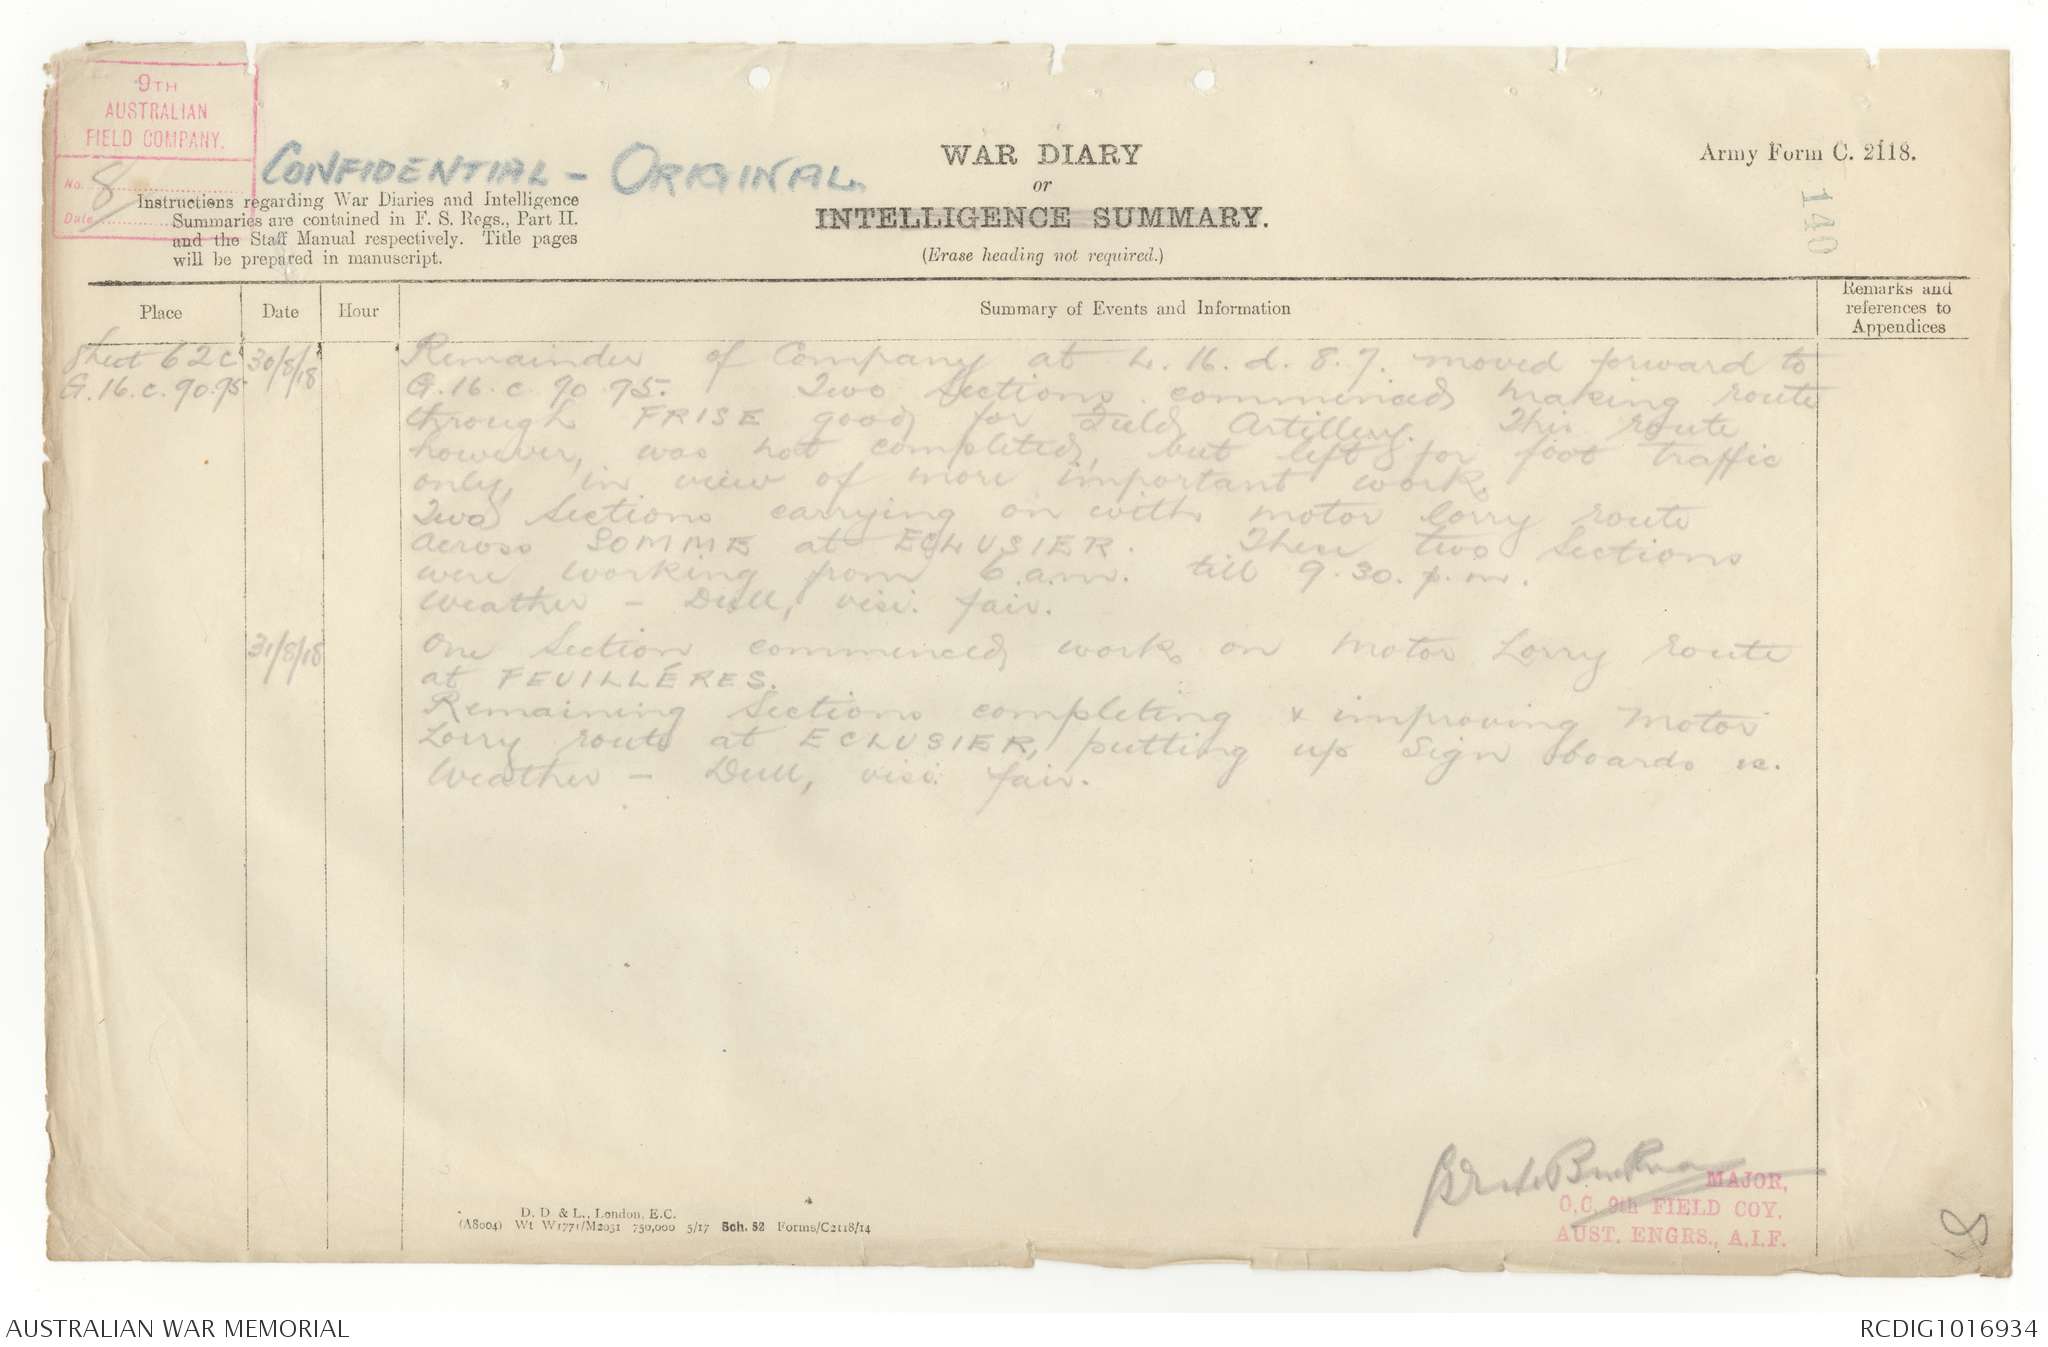 9TH
AUSTRALIAN
FIELD COMPANY.
No. 8
Date
CONFIDENTIAL - ORIGINAL.
Instructions regarding War Diaries and Intelligence
Summaries are contained in F. S. Regs., Part II.
and the Staff Manual respectively. Title pages
will be prepared in manuscript.
WAR DIARY
or
INTELLIGENCE SUMMARY.
(Erase heading not required.)
Army Form C. 2118.
140
Place Date Hour Summary of Events and Information Remarks and
references to
Appendices
Sheet 62c 30/8/18 Remainder of Company at L. 16. d. 8. 7. moved forward to
G. 16. c. 90. 95 G. 16. c. 90 95. Two Sections commenced making route
through FRISE good for Field Artillery. This route
however, was not completed, but left for foot traffic
only, in view of more important work.
Two Sections carrying on with motor lorry route
across SOMME at ECLUSIER. These two Sections
were working from 6 a.m. till 9.30. p.m.
Weather - Dull, visi. fair.
31/8/18 One Section commenced work on Motor Lorry route
at FEUILLÉRES.
Remaining Sections completing & improving Motor
Lorry route at ECLUSIER, putting up sign boards &c.
Weather - Dull, visi. fair.
MAJOR,
O.C. 9th FIELD COY.
AUST. ENGRS., A.I.F.
D. D & L., London, E.C.
(A8004) Wt W1771/M2031 750,000 5/17 Sch. 52 Forms/C2118/14
8
AUSTRALIAN WAR MEMORIAL
RCDIG1016934